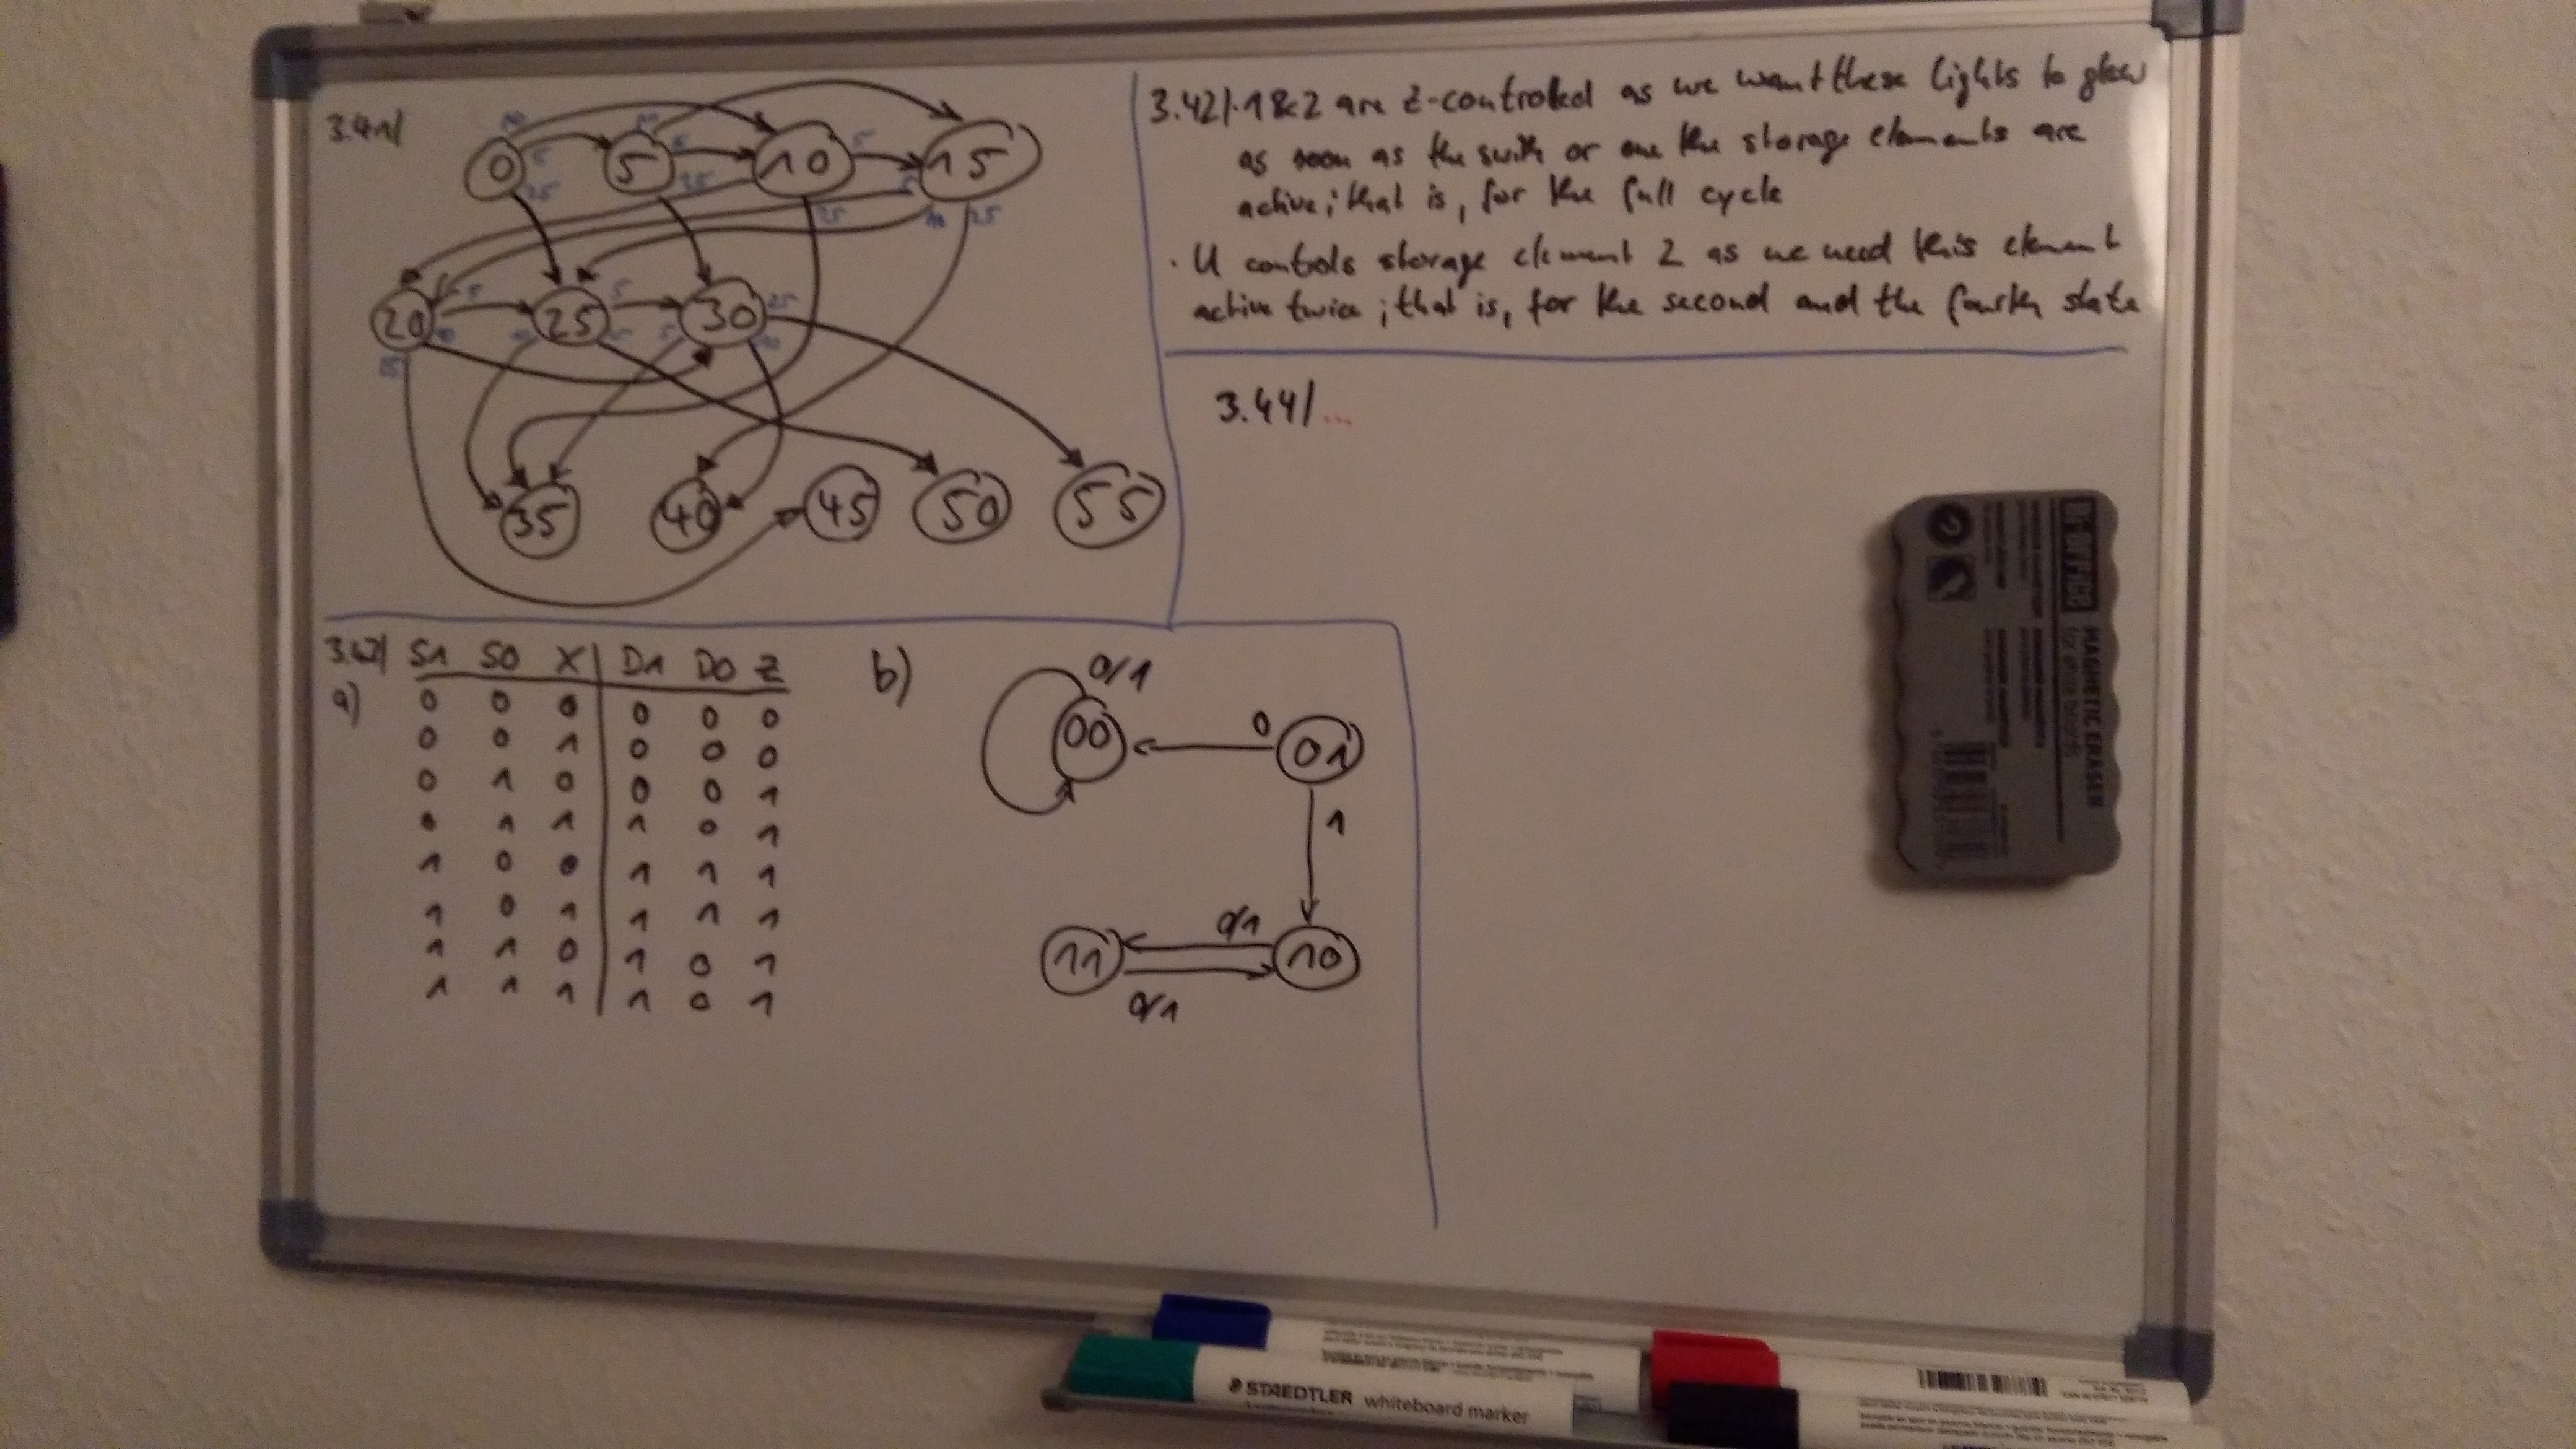 3.41/
10 10
0 5 5 5 10 5 15
25 25 25 5 10 25
20 5 25 5 30 25
10 10 25 5 10
25
35 40 45 50 55
3.42/ · 1&2 are z-controlled as we want these lights to glow
as soon as the swith or one the storage elements are
active; that is, for the full cycle
· U controls storage element 2 as we need this element
active twice; that is, for the second and the fourth state
3.44/...
3.43/ S1 S0 X D1 D0 Z
a)
0 0 0 0 0 0
0 0 1 0 0 0
0 1 0 0 0 1
0 1 1 1 0 1
1 0 0 1 1 1
1 0 1 1 1 1
1 1 0 1 0 1
1 1 1 1 0 1
b)
0/1
00 0 01
1
0/1
11 10
0/1
MAGNETIC ERASER
for white boards
STAEDTLER whiteboard marker